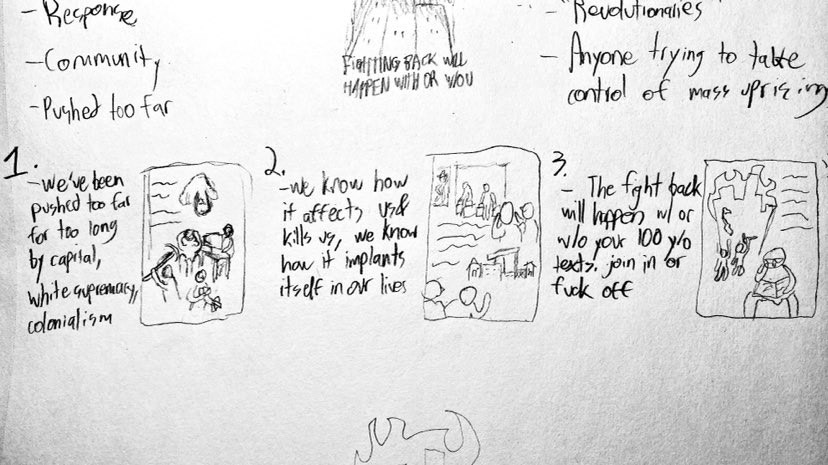 - Response
- Community
- Pushed too far
FIGHTING BACK WILL
HAPPEN WITH OR W/OU
- "Revolutionaries"
- Anyone trying to take
control of mass uprising
1.
- we've been
pushed too far
for too long
by capital,
white supremacy,
colonialism
2.
- we know how
it affects us &
kills us, we know
how it implants
itself in our lives
3.
- The fight back
will happen w/ or
w/o your 100 y/o
texts. join in or
fuck off